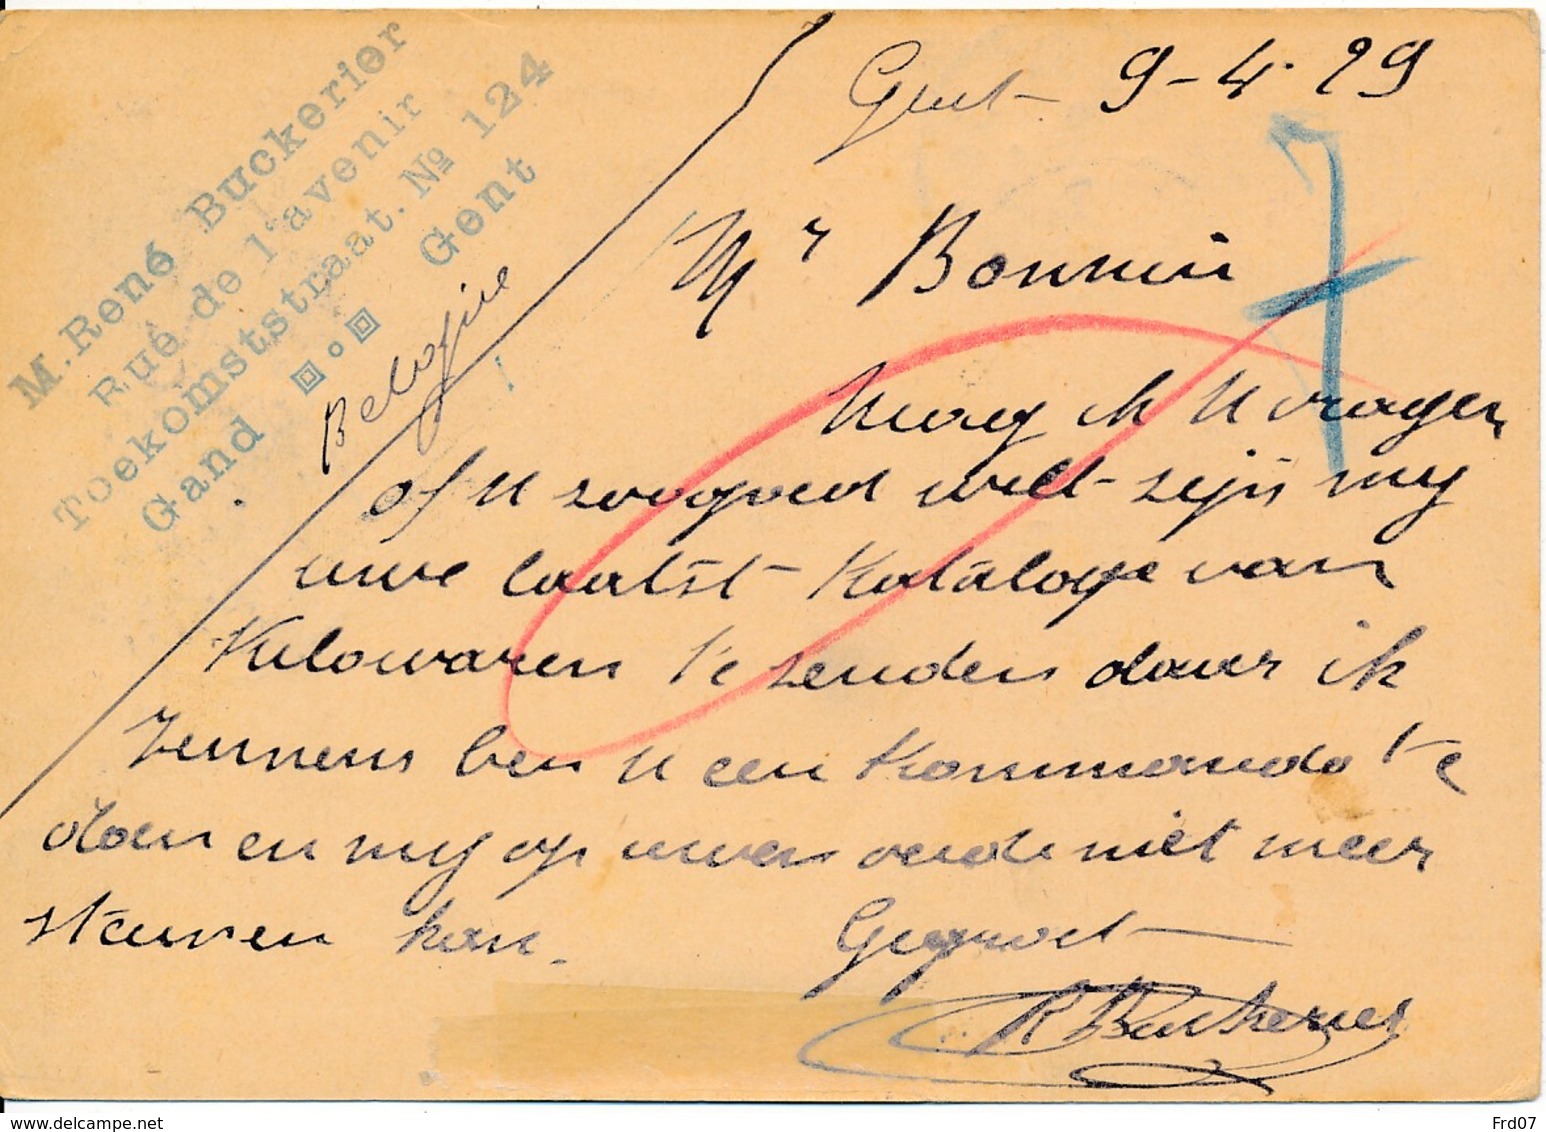 M. René Buckerier
Rue de l'avenir
Toekomststraat. № 124
Gand Gent
Belogique
Gent 9-4-29
Mr Bonnin
Mag ik U vragen
of U zoo goed wilt zijn my
uwe laatst Kataloge van
Kilowaren te zenden daar ik
ben U een Kommando te
doen en my op uwen oude niet meer
steunen kan.
Gegroet
R Buckerier
www.delcampe.net
Frd07